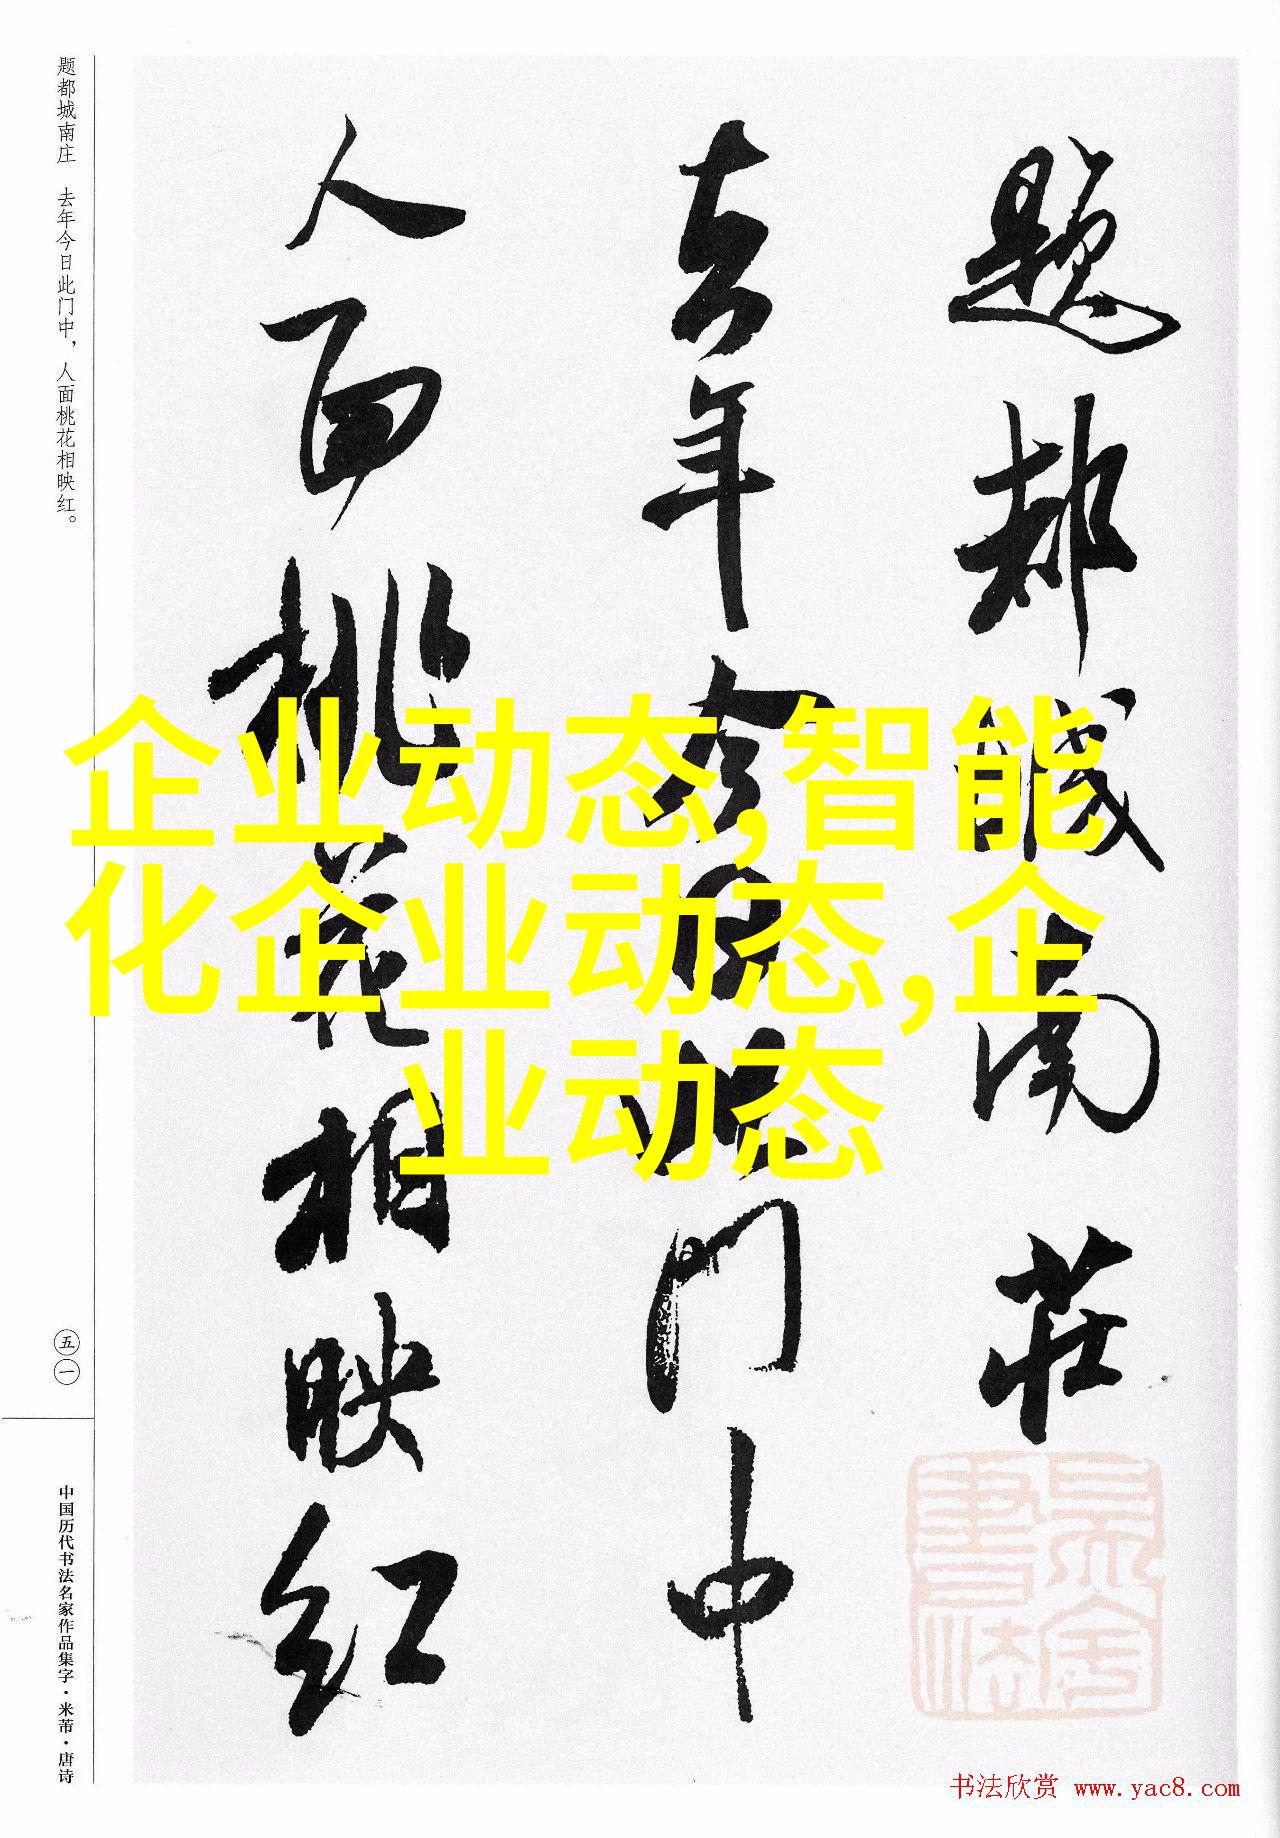 题都城南庄　去年今日此门中，人面桃花相映红。
五一
中国历代书法名家作品集字·米芾·唐诗
题都城南莊
去年今日此门中
人面桃花相映红
企业动态,智能
化企业动态,企
业动态
书法欣赏 www.yac8.com